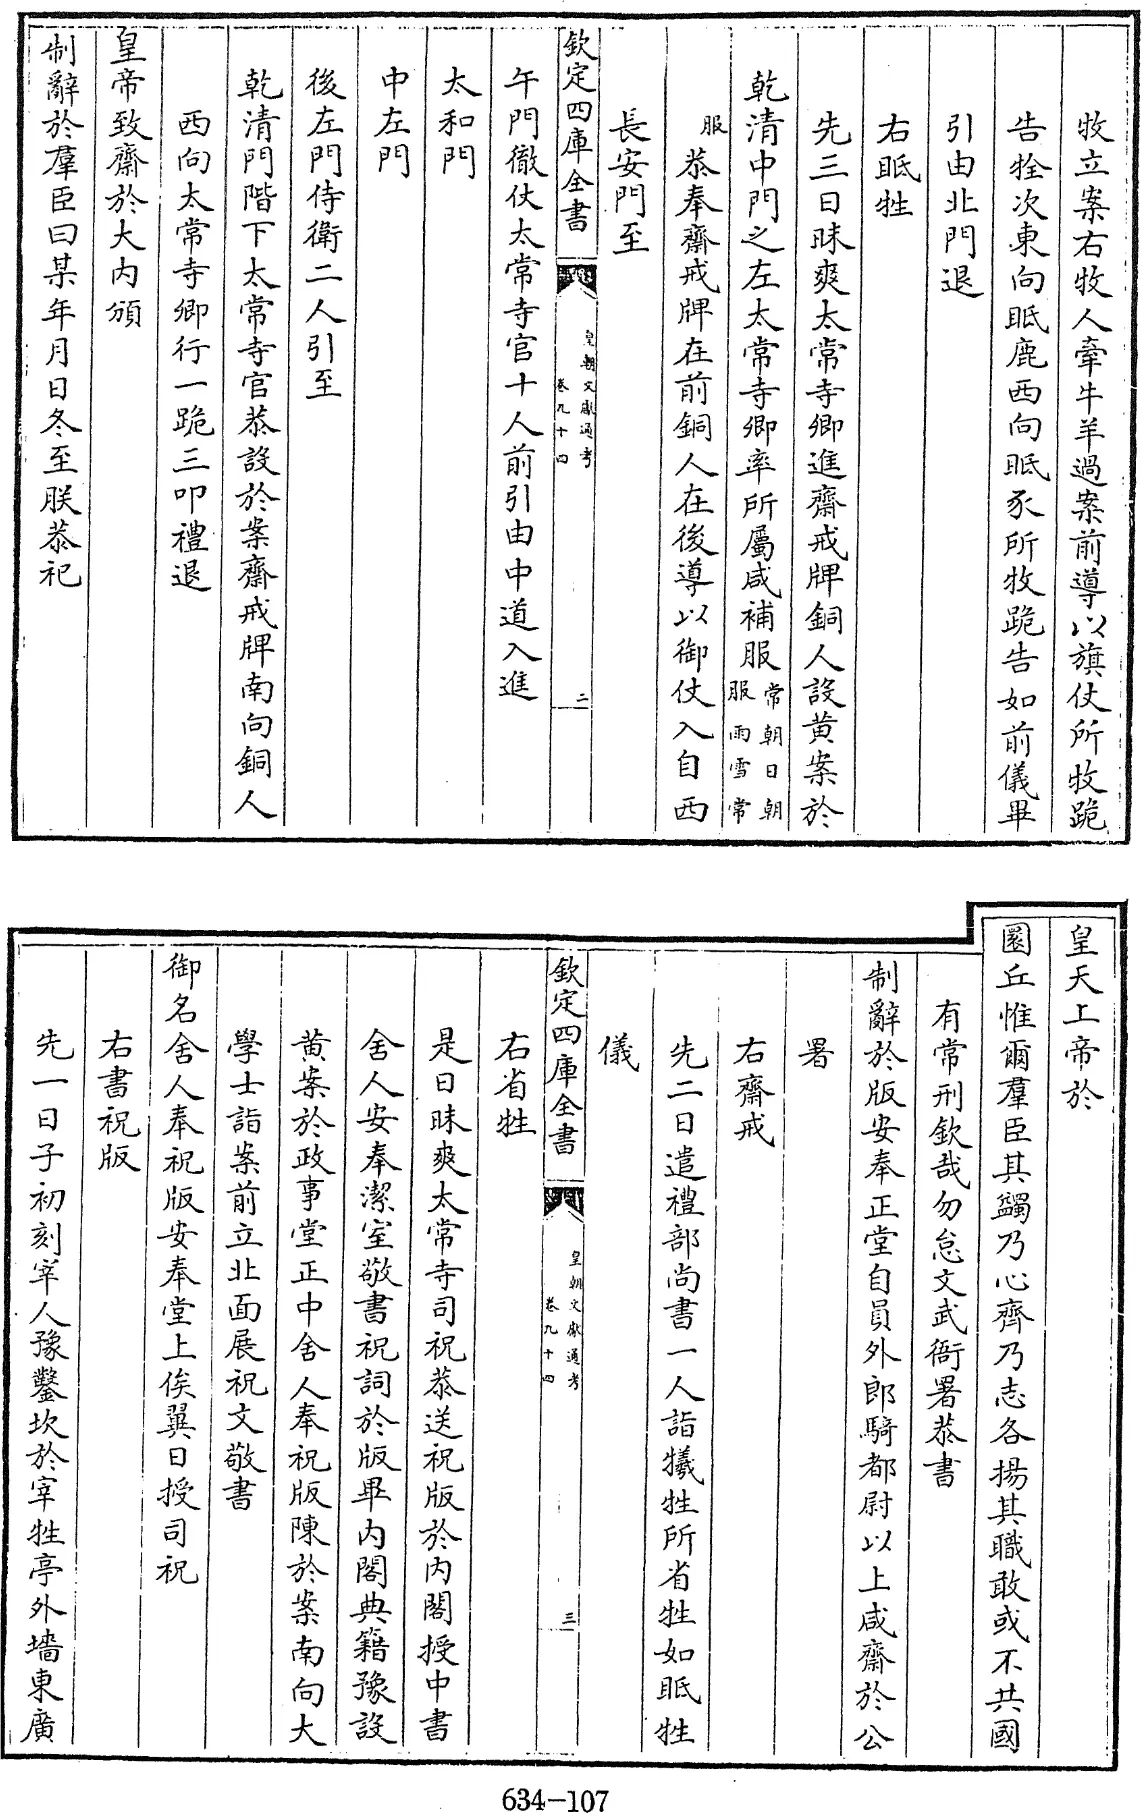 牧立案右牧人牽牛羊過案前導以旗仗所牧跪
告牷次東向眡鹿西向眡豕所牧跪告如前儀畢
引由北門退
右眡牲
先三日昧爽太常寺卿進齋戒牌銅人設黄案於
乾清中門之左太常寺卿率所屬咸補服常朝日朝服雨雪常
服恭奉齋戒牌在前銅人在後導以御仗入自西
長安門至
欽定四庫全書
皇朝文獻通考
卷九十四
二
午門徹仗太常寺官十人前引由中道入進
太和門
中左門
後左門侍衛二人引至
乾清門階下太常寺官恭設於案齋戒牌南向銅人
西向太常寺卿行一跪三叩禮退
皇帝致齋於大内頒
制辭於羣臣曰某年月日冬至朕恭祀
皇天上帝於
圜丘惟爾羣臣其蠲乃心齊乃志各揚其職敢或不共國
有常刑欽哉勿怠文武衙署恭書
制辭於版安奉正堂自員外郎騎都尉以上咸齋於公
署
右齋戒
先二日遣禮部尚書一人詣犧牲所省牲如眡牲
儀
欽定四庫全書
皇朝文獻通考
卷九十四
三
右省牲
是日昧爽太常寺司祝恭送祝版於内閣授中書
舍人安奉潔室敬書祝詞於版畢内閣典籍豫設
黄案於政事堂正中舍人奉祝版陳於案南向大
學士詣案前立北面展祝文敬書
御名舍人奉祝版安奉堂上俟翼日授司祝
右書祝版
先一日子初刻宰人豫鑿坎於宰牲亭外墻東廣
634-107